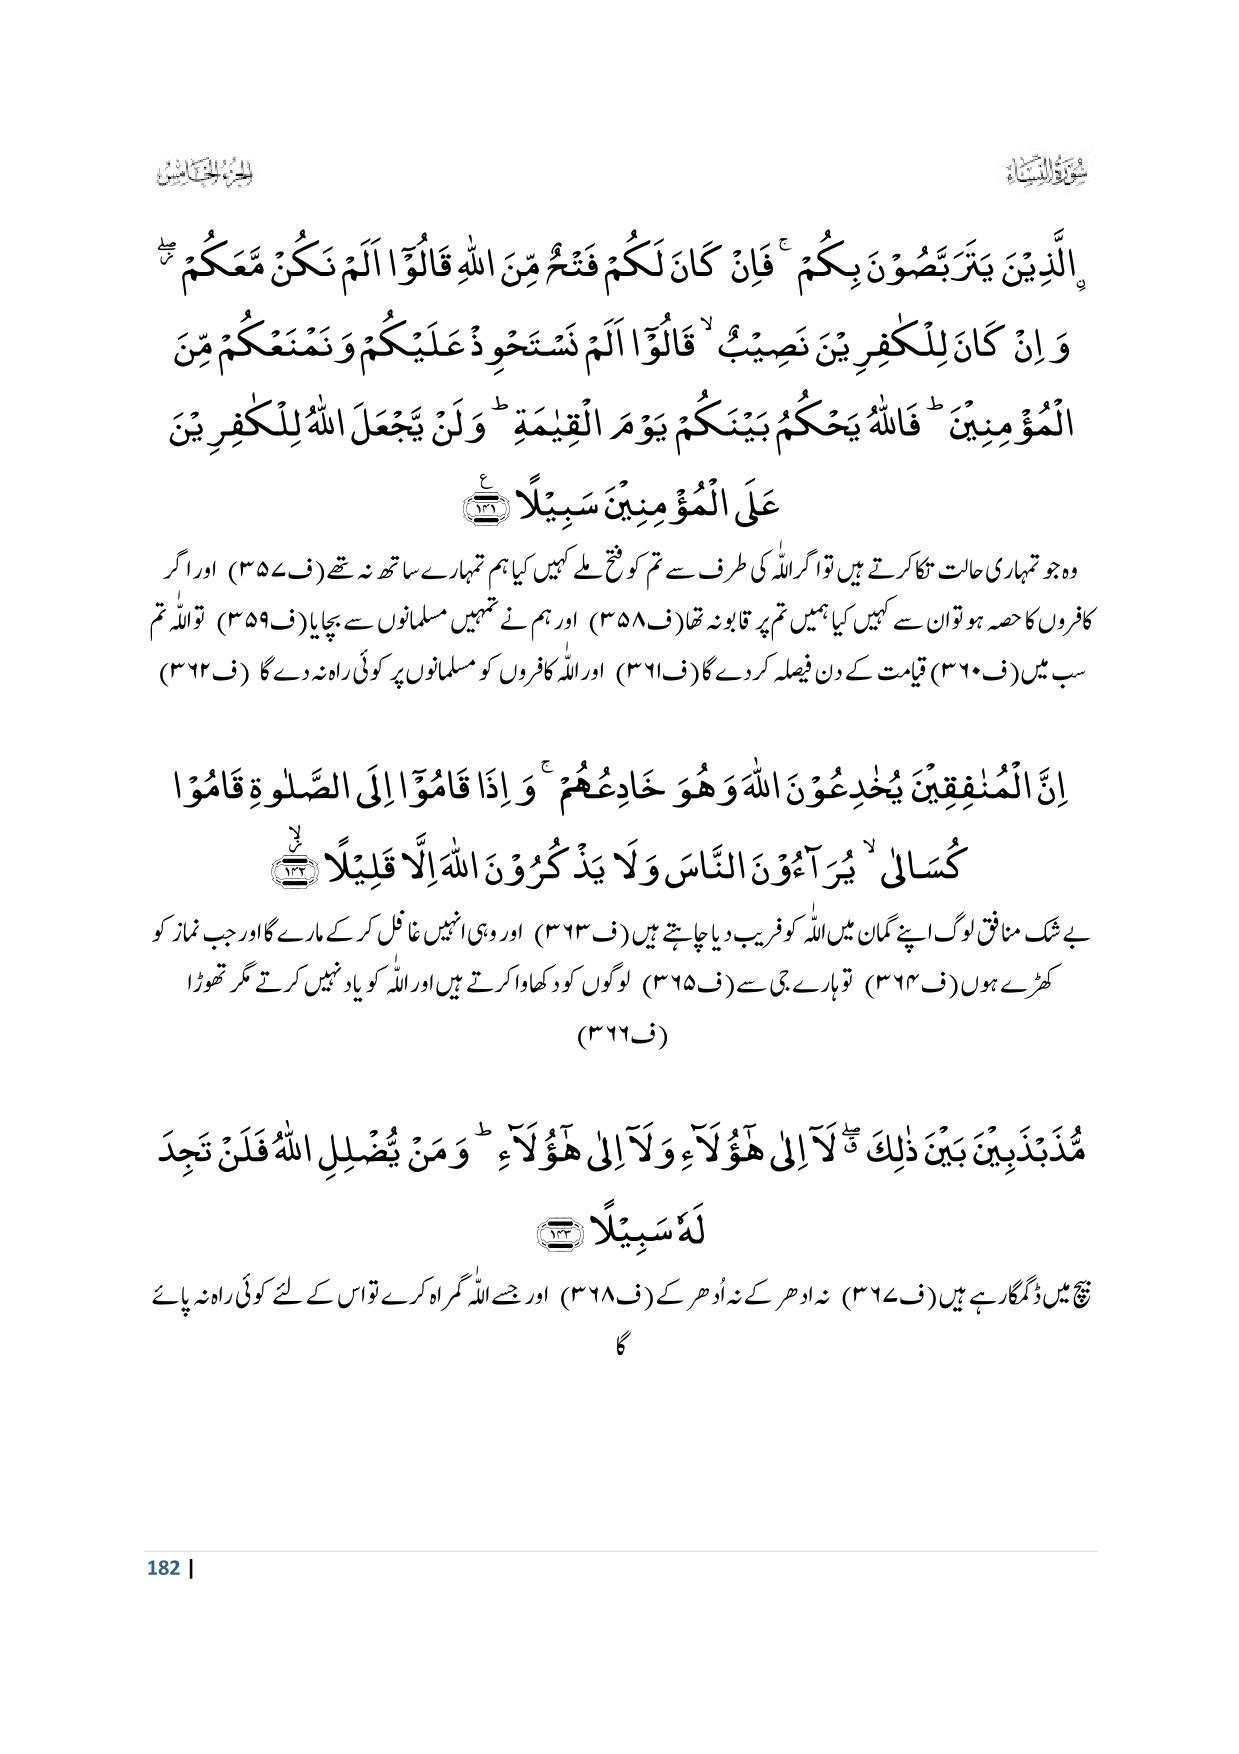 سُوْرَةُ النِّسَاء الجزء الخامس
ۣالَّذِيْنَ يَتَرَبَّصُوْنَ بِكُمْ ۚ فَاِنْ كَانَ لَكُمْ فَتْحٌ مِّنَ اللّٰهِ قَالُوْۤا اَلَمْ نَكُنْ مَّعَكُمْ ۖ٘
وَ اِنْ كَانَ لِلْكٰفِرِيْنَ نَصِيْبٌ ۙ قَالُوْۤا اَلَمْ نَسْتَحْوِذْ عَلَيْكُمْ وَ نَمْنَعْكُمْ مِّنَ
الْمُؤْمِنِيْنَ ؕ فَاللّٰهُ يَحْكُمُ بَيْنَكُمْ يَوْمَ الْقِيٰمَةِ ؕ وَ لَنْ يَّجْعَلَ اللّٰهُ لِلْكٰفِرِيْنَ
عَلَى الْمُؤْمِنِيْنَ سَبِيْلًا ﴿۱۴۱﴾ ع
وہ جو تمہاری حالت تکا کرتے ہیں تو اگر اللّٰہ کی طرف سے تم کو فتح ملے کہیں کیا ہم تمہارے ساتھ نہ تھے (ف۳۵۷) اور اگر
کافروں کا حصہ ہو تو ان سے کہیں کیا ہمیں تم پر قابو نہ تھا (ف۳۵۸) اور ہم نے تمہیں مسلمانوں سے بچایا (ف۳۵۹) تو اللّٰہ تم
سب میں (ف۳۶۰) قیامت کے دن فیصلہ کر دے گا (ف۳۶۱) اور اللّٰہ کافروں کو مسلمانوں پر کوئی راہ نہ دے گا (ف۳۶۲)
اِنَّ الْمُنٰفِقِيْنَ يُخٰدِعُوْنَ اللّٰهَ وَ هُوَ خَادِعُهُمْ ۚ وَ اِذَا قَامُوْۤا اِلَى الصَّلٰوةِ قَامُوْا
كُسَالٰى ۙ يُرَآءُوْنَ النَّاسَ وَ لَا يَذْكُرُوْنَ اللّٰهَ اِلَّا قَلِيْلًا ﴿۱۴۲﴾ ۙ٘
بے شک منافق لوگ اپنے گمان میں اللّٰہ کو فریب دیا چاہتے ہیں (ف۳۶۳) اور وہی انہیں غافل کر کے مارے گا اور جب نماز کو
کھڑے ہوں (ف۳۶۴) تو ہارے جی سے (ف۳۶۵) لوگوں کو دکھاوا کرتے ہیں اور اللّٰہ کو یاد نہیں کرتے مگر تھوڑا
(ف۳۶۶)
مُّذَبْذَبِيْنَ بَيْنَ ذٰلِكَ ۖۗ لَاۤ اِلٰى هٰۤؤُلَآءِ وَ لَاۤ اِلٰى هٰۤؤُلَآءِ ؕ وَ مَنْ يُّضْلِلِ اللّٰهُ فَلَنْ تَجِدَ
لَهٗ سَبِيْلًا ﴿۱۴۳﴾
بیچ میں ڈگمگا رہے ہیں (ف۳۶۷) نہ ادھر کے نہ اُدھر کے (ف۳۶۸) اور جسے اللّٰہ گمراہ کرے تو اس کے لئے کوئی راہ نہ پائے
گا
182 |